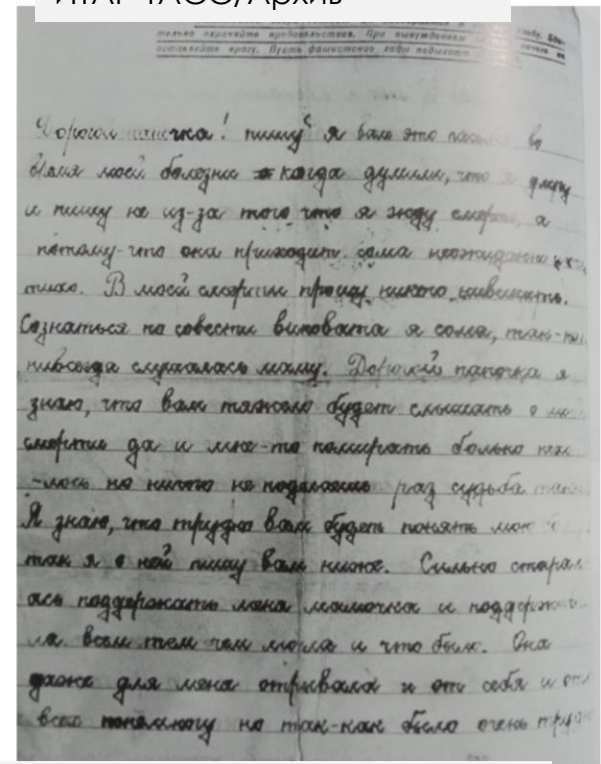 ИТАР-ТАСС/Архив
тельно охраняйте продовольствие. При вынужденном
оставляйте врагу. Пусть фашистские гады подыхают
Дорогой папочка! пишу я вам это письмо во
время моей болезни когда думали, что я умру
и пишу не из-за того что я жду смерти, а
потому-что она приходит сама неожиданно и
тихо. В моей смерти прошу никого невинить.
Сознаться по совести виновата я сама, так-как
невсегда слушалась маму. Дорогой папочка я
знаю, что вам тяжело будет слышать о
смерти да и мне-то помирать больно
-лось но ничего не поделаешь раз судьба
Я знаю, что трудно вам будет понять мою
так я о ней пишу вам ниже. Сильно старал
ась поддержать меня мамочка и поддержива
ла всем тем чем могла и что было. Она
даже для меня отрывала и от себя и от
всех понемногу но так-как было очень трудно